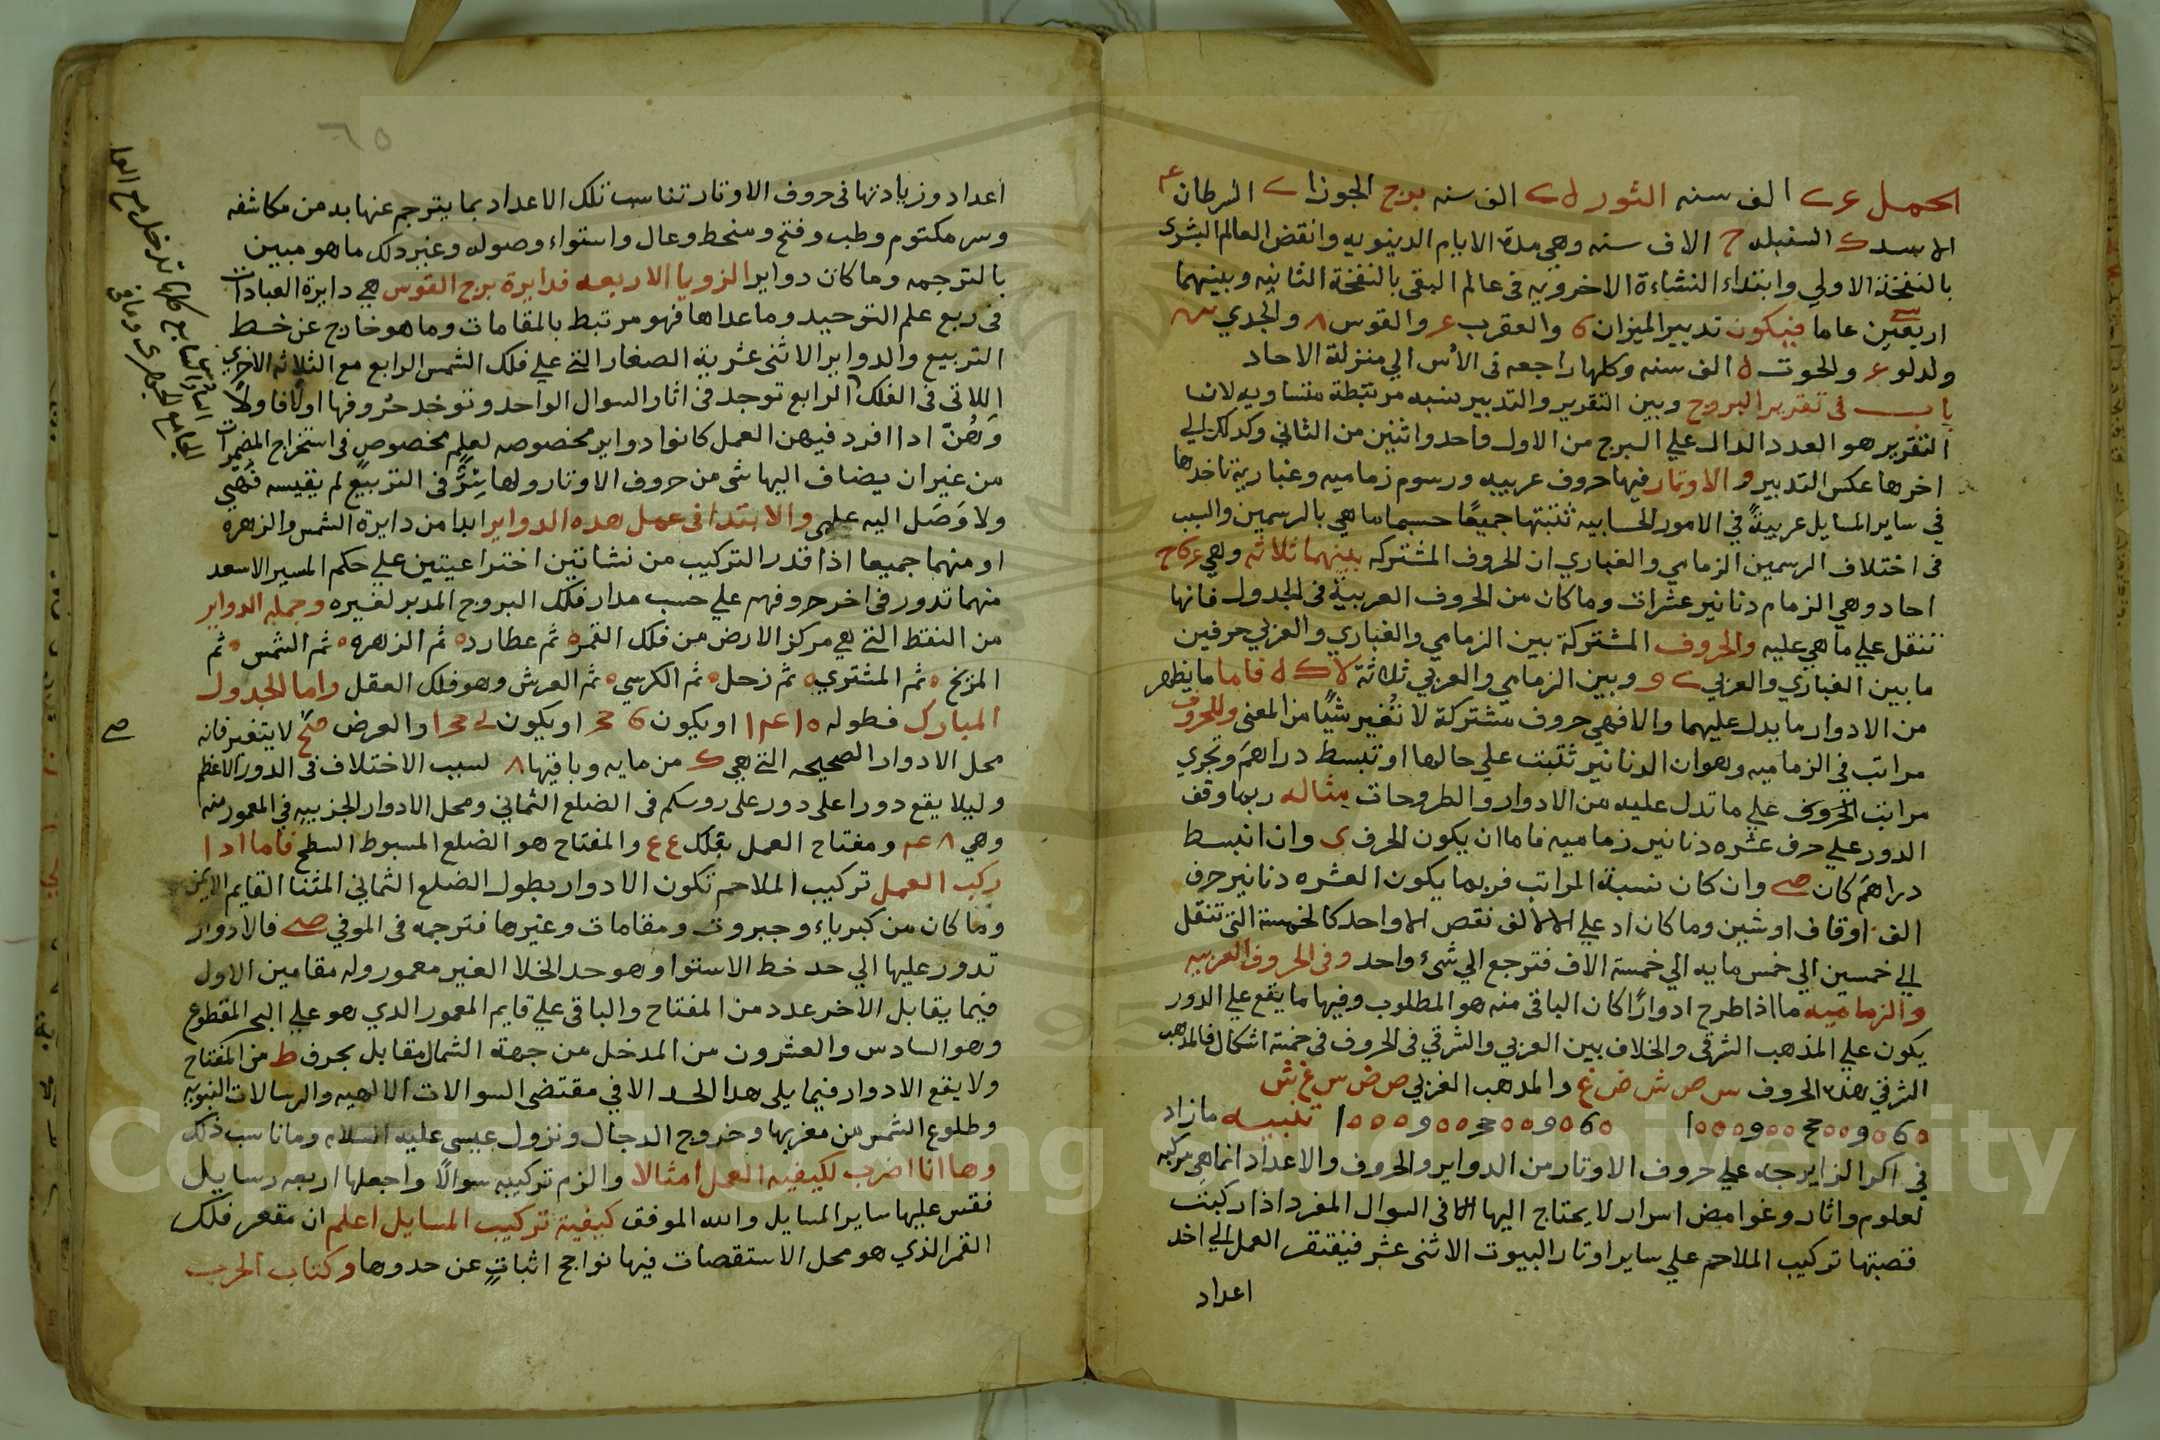 الحمل الف سنه الثور الف سنه برج الجوزا السرطان
الاسد السنبله ح الاف سنه وهي مدة الايام الدنيويه وانقض العالم البشرى
بالنفخة الاولي وابتداء النشاءة الاخرويه فى عالم البقى بالنفخة الثانيه وبينهما
اربعين عاما فيكون تدبير الميزان 6 والعقرب والقوس ٨ والجدي
ولدلو والحوت الف سنه وكلها راجعه فى الاس الي منزلة الاحاد
باب فى تقرير البروج وبين التقرير والتدبير نسبه مرتبطة متساويه لان
التقرير هو العدد الدال علي البرج من الاول واحد واثنين من الثاني وكدلك الي
اخرها عكس التدبير والاوتار فيها حروف عربيه ورسوم زماميه وغبارية ناخدها
في ساير المسايل عربية في الامور الحسابيه نثبتها جميعًا حسبما هي بالرسمين والسبب
فى اختلاف الرسمين الزمامي والغباري ان الحروف المشتركه بينهما ثلاثه وهي
احاد وهي الزمام دنانير عشرات وما كان من الحروف العربية فى الجدول فانها
تنقل علي ما هي عليه والحروف المشتركة بين الزمامي والغباري والعربي حرفين
ما بين الغباري والعربي وبين الزمامي والعربي ثلاثة فاما ما يظهر
من الادوار ما يدل عليهما والا فهي حروف مشتركة لا تُغير شيًا من المعنى وللحروف
مراتب في الزماميه وهو ان الدنانير تثبت علي حالها او تبسط دراهمَ وتجري
مراتب الحروف علي ما تدل عليه من الادوار والطروحات مثاله ربما وقف
الدور علي حرف عشره دنانير زماميه فاما ان يكون الحرف ى وان انبسط
دراهمَ كان وان كان نسبة المراتب فربما يكون العشره دنانير حرف
الف اوقاف اوشين وما كان اد علي الالف نقص الا واحد كالخمسة التي تنقل
الي خمسين الي خمس مايه الي خمسة الاف فترجع الي شىء واحد وفى الحروف العربيه
والزماميه ما اذا طرح ادوارًا كان الباقى منه هو المطلوب وفيها ما يقع علي الدور
يكون علي المذهب الشرقى والخلاف بين العربي والشرقي فى الحروف في خمسة اشكال فالمدهب
الشرقي بهذه الحروف س ص ش ض غ والمدهب الغربي ص ض س غ ش
تنبيه ما زاد
في اكر الزايرجه علي حروف الاوتار من الدواير والحروف والاعداد انما هي مركبه
لعلوم واثار وغوامض اسرار لا يحتاج اليها الا فى السوال المفرد اذا ركبت
قصبتها تركيب الملاحم علي ساير اوتار البيوت الاثنى عشر فيفتقر العمل الي اخد
اعداد
٦٥
اعداد وزيادتها فى حروف الاوتار تناسب تلك الاعداد بما يترجم عنها بد من مكاشفه
وسر مكتوم وطب وفتح وسخط وعال واستواء وصوله وغير دلك ما هو مبين
بالترجمه وما كان دواير الزويا الاربعه فدايرة برج القوس هي دايرة العبادات
فى ربع علم التوحيد وما عداها فهو مرتبط بالمقامات وما هو خارج عن خط
التربيع والدواير الاثنى عشرية الصغار التي علي فلك الشمس الرابع مع الثلاثه الاخرى
اللاتى فى الفلك الرابع توجد فى اثار السوال الواحد وتوخد حروفها اولًا فاولًا
وَهُنَّ ادا افرد فيهن العمل كانوا دواير مخصوصه لعلم مخصوص فى استخراج المضمرات
من غير ان يضاف اليها شى من حروف الاوتار ولها سِرٌّ فى التربيع لم يقيسه
ولا وَصَل اليه علمي والابتدا فى عمل هده الدواير ابدا من دايرة الشمس والزهره
او منهما جميعا اذا قدر التركيب من نشاتين اختراعيتين علي حكم المسير الاسعد
منهما تدور فى اخر حروفهم علي حسب مدار فلك البروح المدبر لغيره وجمله الدواير
من النقط التي هي مركز الارض من فلك القمر ثم عطارد ثم الزهره ثم الشمس ثم
المريخ ثم المشتري ثم زحل ثم الكرسي ثم العرش وهو فلك العقل واما الجدول
المبارك فطوله او يكون او يكون والعرض لا يتغير فانه
محل الادوار الصحيحه التي هي من مايه وباقيها ٨ لسبب الاختلاف فى الدور الاعظم
وليلا يقع دورا على دور على روسكم فى الضلع الثماني ومحل الادوار الجزييه في المعمور منه
وهي ومفتاح العمل بفلك والمفتاح هو الضلع المسبوط السطح فاما ادا
ركب العمل تركيب الملاحم تكون الادوار بطول الضلع الثماني المثنا القايم الايمن
وما كان من كبرياء وجبروت ومقامات وغيرها فترجمه فى الموفي فالادوار
تدور عليها الي حد خط الاستوا وهو حد الخلا الغير معمور وله مقامين الاول
فيما يقابل الاخر عدد من المفتاح والباقى علي قايم المعمور الدي هو علي البحر المقطوع
وهو السادس والعشرون من المدخل من جهة الشمال مقابل بحرف ط من المفتاح
ولا يقع الادوار فيما يلى هدا الحد الا في مقتضى السوالات الالهيه والرسالات النبويه
وطلوع الشمس من مغربها وخروج الدجال ونزول عيسى عليه السلام وما ناسب ذلك
وها انا اضرب لكيفيه العمل امثالا والزم تركيبه سوالًا واجعلها اربعه رسايل
فقس عليها ساير المسايل والله الموفق كيفية تركيب المسايل اعلم ان مقعر فلك
القمر الذي هو محل الاستقصات فيها نواجح اثباتٍ عن حدوها وكتاب الحرب
Copyright © King Saud University